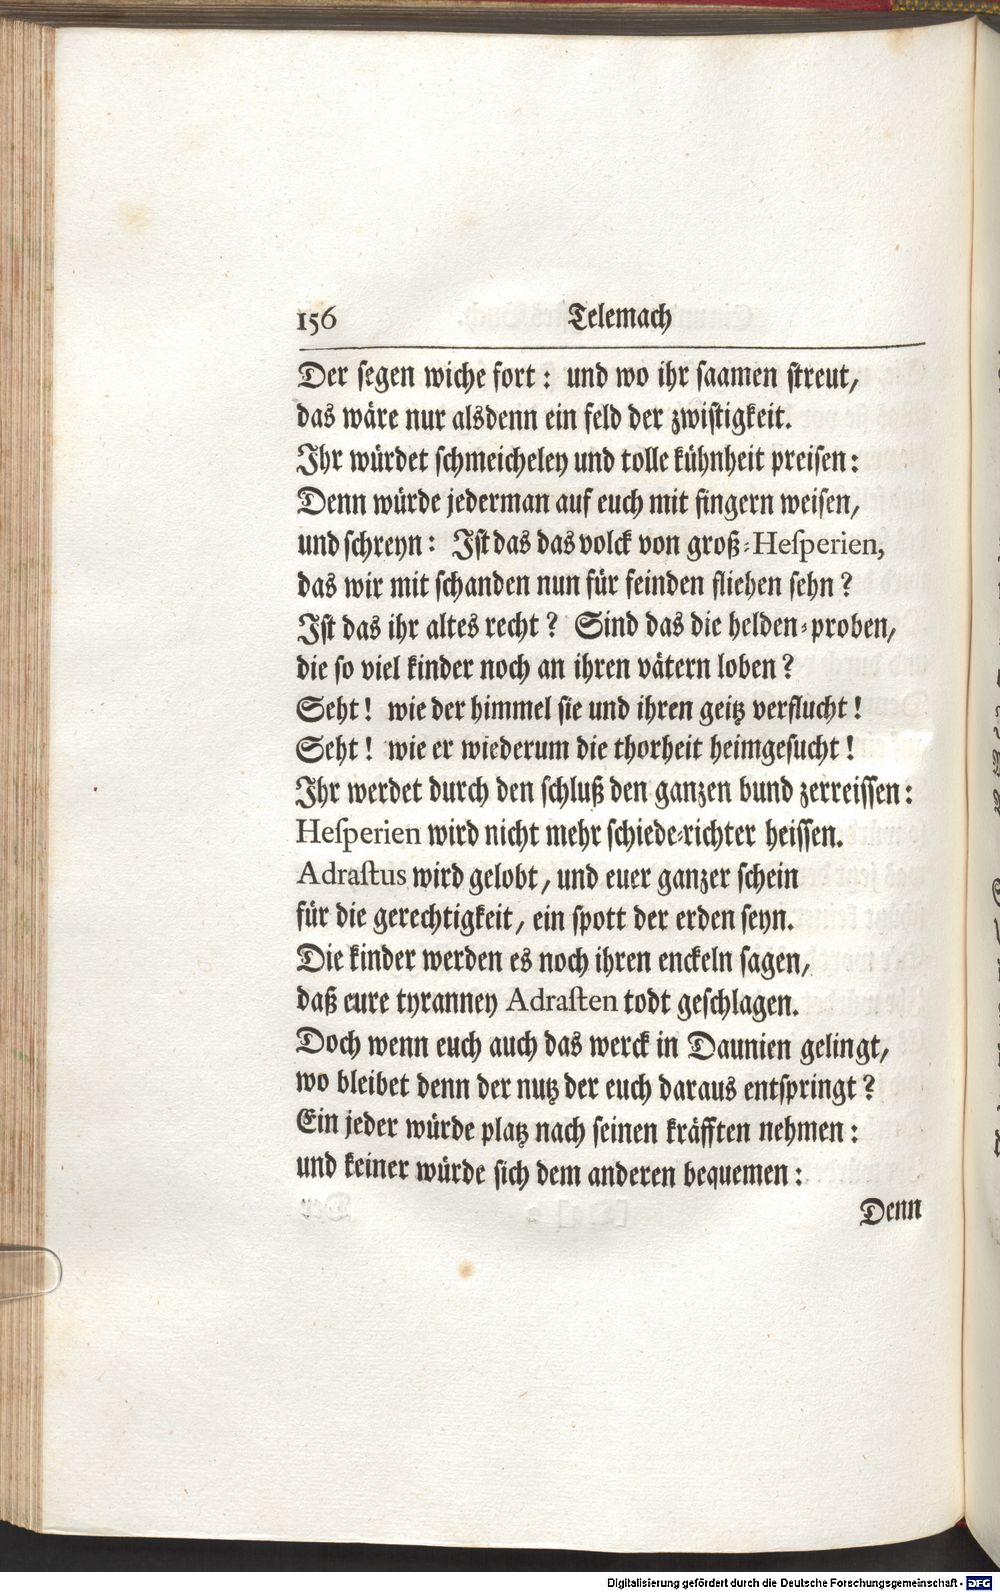 156 Telemach
Der segen wiche fort: und wo ihr saamen streut,
das wäre nur alsdenn ein feld der zwistigkeit.
Ihr würdet schmeicheley und tolle kühnheit preisen:
Denn würde jederman auf euch mit fingern weisen,
und schreyn: Ist das das volck von groß-Heſperien,
das wir mit schanden nun für feinden fliehen sehn?
Ist das ihr altes recht? Sind das die helden-proben,
die so viel kinder noch an ihren vätern loben?
Seht! wie der himmel sie und ihren geitz verflucht!
Seht! wie er wiederum die thorheit heimgesucht!
Ihr werdet durch den schluß den ganzen bund zerreissen:
Heſperien wird nicht mehr schiede-richter heissen.
Adraſtus wird gelobt, und euer ganzer schein
für die gerechtigkeit, ein spott der erden seyn.
Die kinder werden es noch ihren enckeln sagen,
daß eure tyranney Adraſten todt geschlagen.
Doch wenn euch auch das werck in Daunien gelingt,
wo bleibet denn der nutz der euch daraus entspringt?
Ein jeder würde platz nach seinen kräfften nehmen:
und keiner würde sich dem anderen bequemen:
Denn
Digitalisierung gefördert durch die Deutsche Forschungsgemeinschaft - DFG